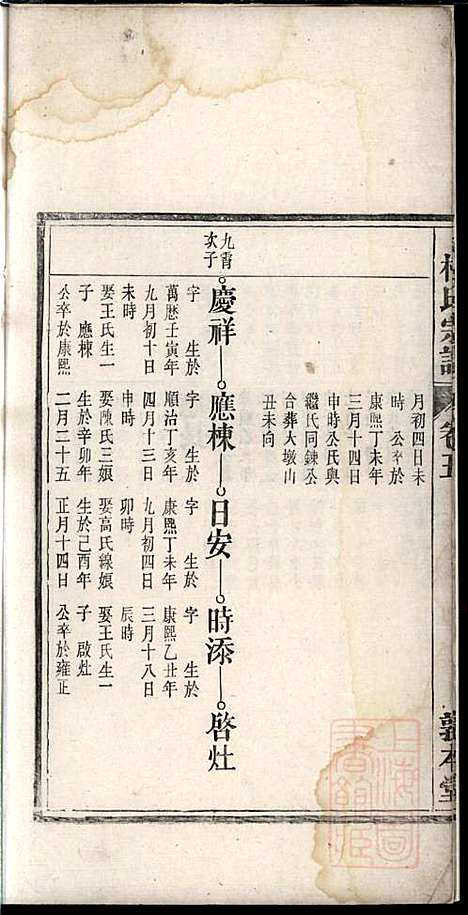 宗譜
卷五
本堂
月初四日未
時 公卒於
康熙丁未年
三月十四日
申時公氏與
繼氏同鍊公
合葬大墩山
丑未向
九霄
次子
慶祥
應棟
日安
時添
啓灶
字 生於
萬曆壬寅年
九月初十日
未時
娶王氏生一
子 應棟
公卒於康熙
字 生於
順治丁亥年
四月十三日
申時
娶陳氏三娘
生於辛卯年
二月二十五
字 生於
康熙丁未年
九月初四日
卯時
娶高氏線娘
生於己酉年
正月十四日
字 生於
康熙乙丑年
三月十八日
辰時
娶王氏生一
子 啟灶
公卒於雍正